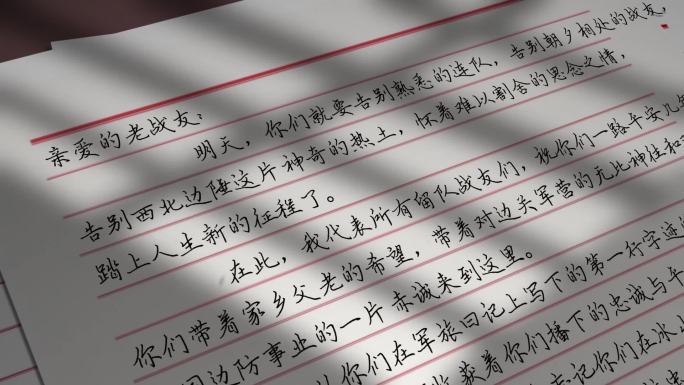 亲爱的老战友：
明天，你们就要告别熟悉的连队，告别朝夕相处的战友，
告别西北边陲这片神奇的热土，怀着难以割舍的思念之情，
踏上人生新的征程了。
在此，我代表所有留队战友们，祝你们一路平安
你们带着家乡父老的希望，带着对边关军营的无比神往和
边防事业的一片赤诚来到这里。
你们在军旅日记上写下的第一行字迹
获着你们播下的忠诚与平
记你们在冰